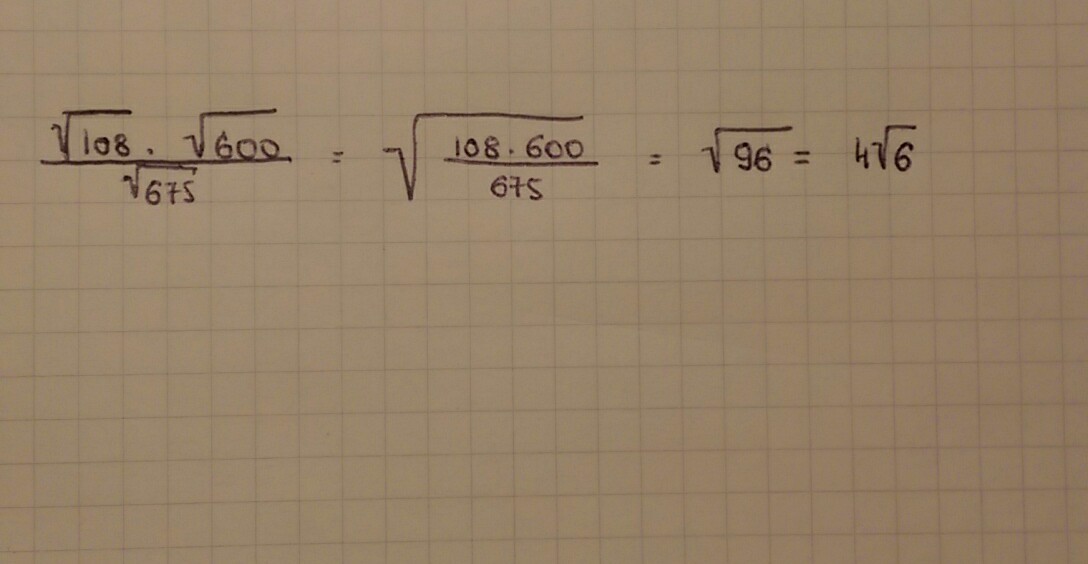 √108 · √600 / √675 = √(108 · 600 / 675) = √96 = 4√6